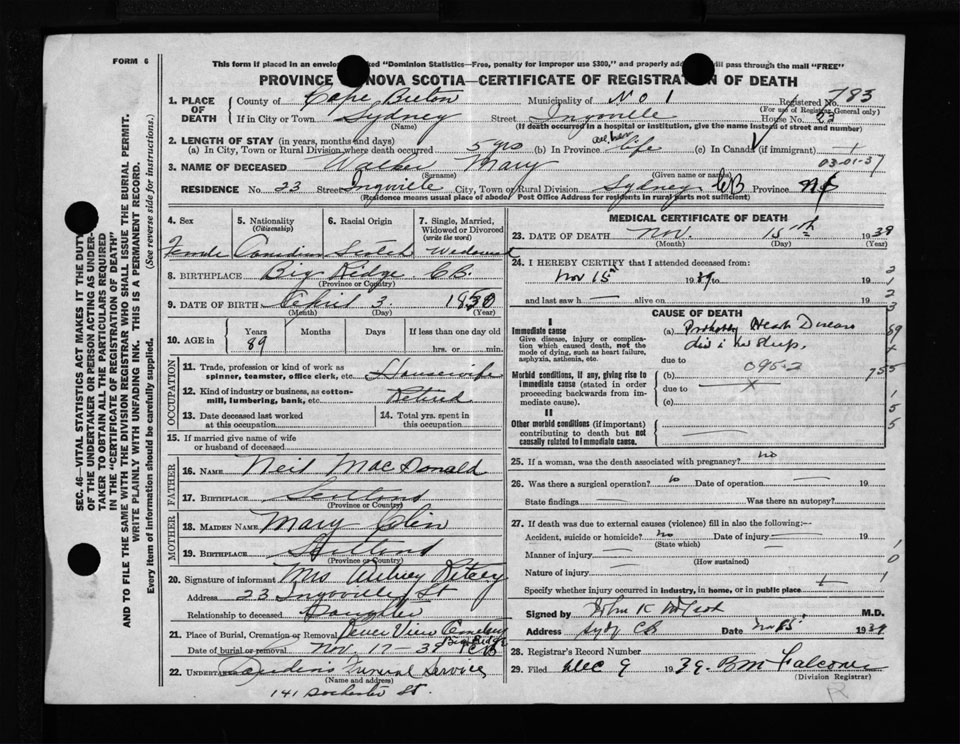 FORM 6
This form if placed in an envelo ked "Dominion Statistics—Free, penalty for improper use $300," and properly add ll pass through the mail "FREE"
PROVINCE NOVA SCOTIA—CERTIFICATE OF REGISTRATION OF DEATH
1. PLACE OF DEATH County of Cape Breton Municipality of No 1 Registered No. 783
(For use of Registrar General only)
If in City or Town Sydney Street Ingville House No. 23
(Name) (If death occurred in a hospital or institution, give the name instead of street and number)
2. LENGTH OF STAY (in years, months and days)
(a) In City, Town or Rural Division where death occurred 5 yrs (b) In Province all her life (c) In Canada (if immigrant)
03-01-37
3. NAME OF DECEASED Walker Mary
(Surname) (Given name or names)
RESIDENCE No. 23 Street Ingville City, Town or Rural Division Sydney CB Province NS
(Residence means usual place of abode. Post Office Address for residents in rural parts not sufficient)
4. Sex Female
5. Nationality (Citizenship) Canadian
6. Racial Origin Scotch
7. Single, Married, Widowed or Divorced (write the word) Widowed
8. BIRTHPLACE Big Ridge C.B.
(Province or Country)
9. DATE OF BIRTH April 3 1850
(Month) (Day) (Year)
10. AGE in Years 89 Months Days If less than one day old hrs. or min.
OCCUPATION
11. Trade, profession or kind of work as spinner, teamster, office clerk, etc. Housewife
12. Kind of industry or business, as cotton-mill, lumbering, bank, etc. Retired
13. Date deceased last worked at this occupation
14. Total yrs. spent in this occupation
15. If married give name of wife or husband of deceased
FATHER
16. NAME Neil MacDonald
17. BIRTHPLACE Scotland
(Province or Country)
MOTHER
18. MAIDEN NAME Mary
19. BIRTHPLACE Scotland
(Province or Country)
20. Signature of informant Mrs
Address 23 Ingville St
Relationship to deceased Daughter
21. Place of Burial, Cremation or Removal View Cemetery
Big Ridge CB
Date of burial or removal Nov. 17-39
22. UNDERTAKER Funeral Service
(Name and address)
141 Dorchester St.
MEDICAL CERTIFICATE OF DEATH
23. DATE OF DEATH Nov. 15th 1939
(Month) (Day) (Year)
24. I HEREBY CERTIFY that I attended deceased from:
Nov 15th 1939 to 19
and last saw h alive on 19
CAUSE OF DEATH
I
Immediate cause
Give disease, injury or complication which caused death, not the mode of dying, such as heart failure, asphyxia, asthenia, etc.
(a) Probably Heart Disease
died in her sleep.
due to
095-2
Morbid conditions, if any, giving rise to immediate cause (stated in order proceeding backwards from immediate cause).
(b)
due to
(c)
II
Other morbid conditions (if important) contributing to death but not causally related to immediate cause.
25. If a woman, was the death associated with pregnancy? no
26. Was there a surgical operation? no Date of operation 19
State findings Was there an autopsy?
27. If death was due to external causes (violence) fill in also the following:—
Accident, suicide or homicide? no Date of injury 19
(State which)
Manner of injury
(How sustained)
Nature of injury
Specify whether injury occurred in industry, in home, or in public place
Signed by John K McLeod M.D.
Address Sydney CB Date Nov 15 1939
28. Registrar's Record Number
29. Filed Dec 9 1939. BM Falconer
(Division Registrar)
R
SEC. 46—VITAL STATISTICS ACT MAKES IT THE DUTY
OF THE UNDERTAKER OR PERSON ACTING AS UNDER-
TAKER TO OBTAIN ALL THE PARTICULARS REQUIRED
IN THE "CERTIFICATE OF REGISTRATION OF DEATH"
AND TO FILE THE SAME WITH THE DIVISION REGISTRAR WHO SHALL ISSUE THE BURIAL PERMIT.
WRITE PLAINLY WITH UNFADING INK. THIS IS A PERMANENT RECORD.
Every item of information should be carefully supplied. (See reverse side for instructions.)